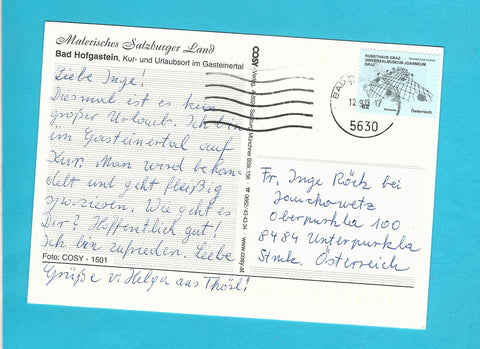 Malerisches Salzburger Land
Bad Hofgastein, Kur- und Urlaubsort im Gasteinertal
Liebe Inge!
Diesmal ist es kein
großer Urlaub. Ich bin
im Gasteinertal auf
Kur. Man wird behan-
delt und geht fleißig
spazieren. Wie geht es
Dir? Hoffentlich gut!
Ich bin zufrieden. Liebe
Grüße v. Helga aus Thörl!
Foto: COSY - 1501
COSY-Verlag, Salzburg
www.cosy.at
KUNSTHAUS GRAZ
UNIVERSALMUSEUM JOANNEUM
GRAZ
62
Österreich
BAD
12.9.13 17
5630
Fr. Inge Röck bei
Oberpurkla 100
8484 Unterpurkla
Stmk. Österreich